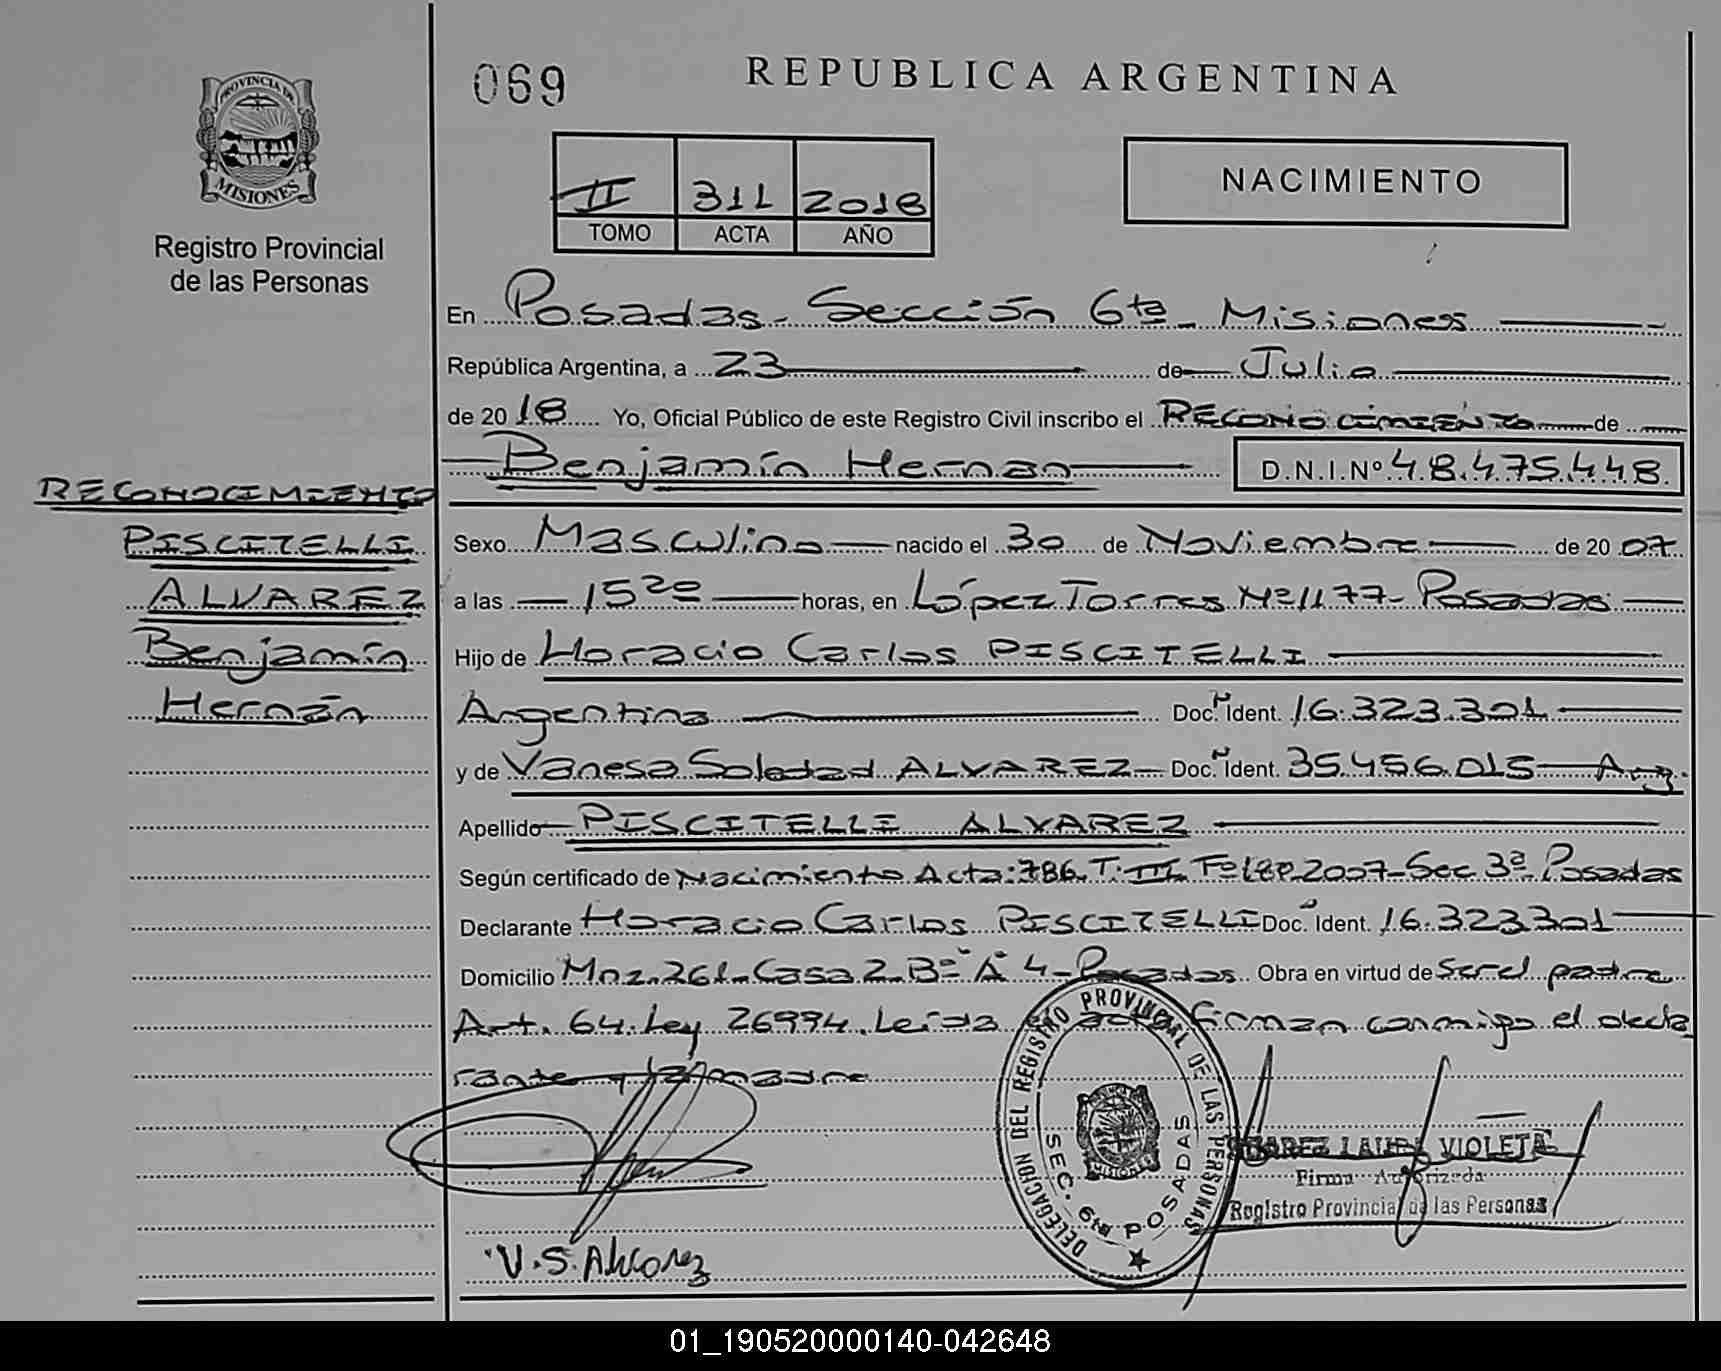 069
REPUBLICA ARGENTINA
PROVINCIA DE
MISIONES
Registro Provincial
de las Personas
II 311 2018
TOMO ACTA AÑO
NACIMIENTO
En Posadas - Sección 6ta - Misiones
República Argentina, a 23 de Julio
de 2018 Yo, Oficial Público de este Registro Civil inscribo el RECONOCIMIENTO de
Benjamín Hernan D.N.I.Nº 48.475.448
RECONOCIMIENTO
PISCITELLI
ALVAREZ
Benjamín
Hernán
Sexo Masculino nacido el 30 de Noviembre de 2007
a las 15 20 horas, en López Torres Nº 1177 - Posadas
Hijo de Horacio Carlos PISCITELLI
Argentina Doc. Ident. 16.323.301
y de Vanesa Soledad ALVAREZ - Doc. Ident. 35.456.015 - Arg.
Apellido PISCITELLI ALVAREZ
Según certificado de Nacimiento Acta: 786 T. III 2007 - Sec 3ª Posadas
Declarante Horacio Carlos PISCITELLI Doc. Ident. 16.323.301
Domicilio Mnz. 261 - Casa 2 Bº A 4 - Posadas Obra en virtud de ser el padre
Art. 64 Ley 26994. Leída acta firman conmigo el decla
rante y la madre
DELEGACION DEL REGISTRO PROVINCIAL DE LAS PERSONAS
SEC. 6ta POSADAS
MISIONES
VIOLETA
Firma Autorizada
Registro Provincial de las Personas
V.S. Alvarez
01_190520000140-042648